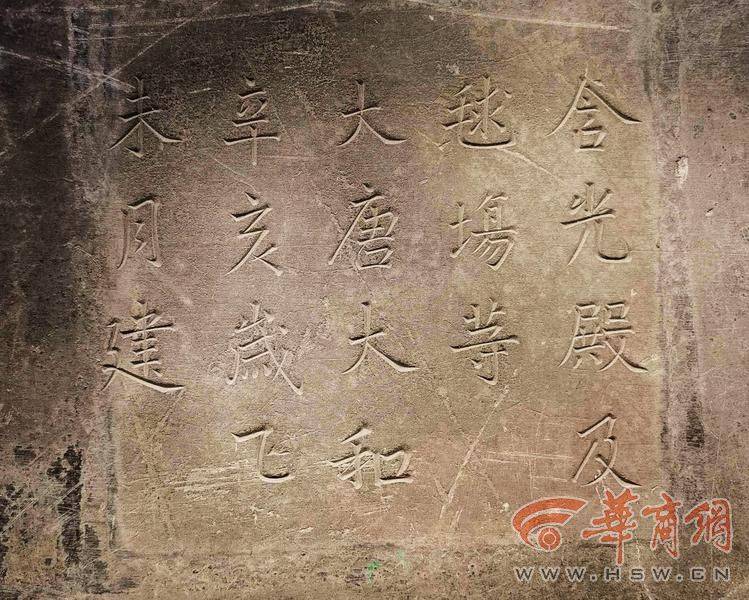 含光殿及
毬場等
大唐大和
辛亥歲乙
未月建
華商網
WWW.HSW.CN